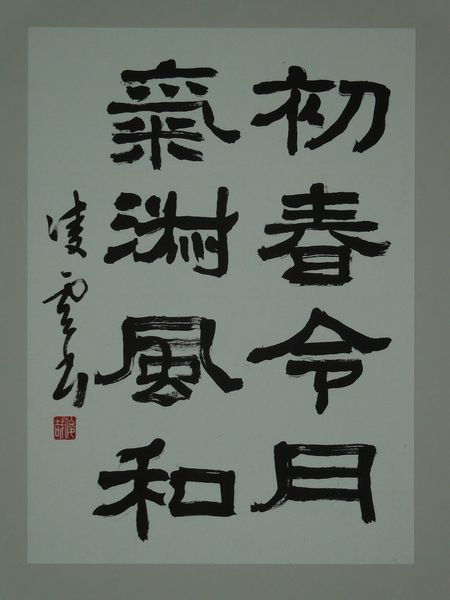 初春令月
氣淑風和
凌雲书